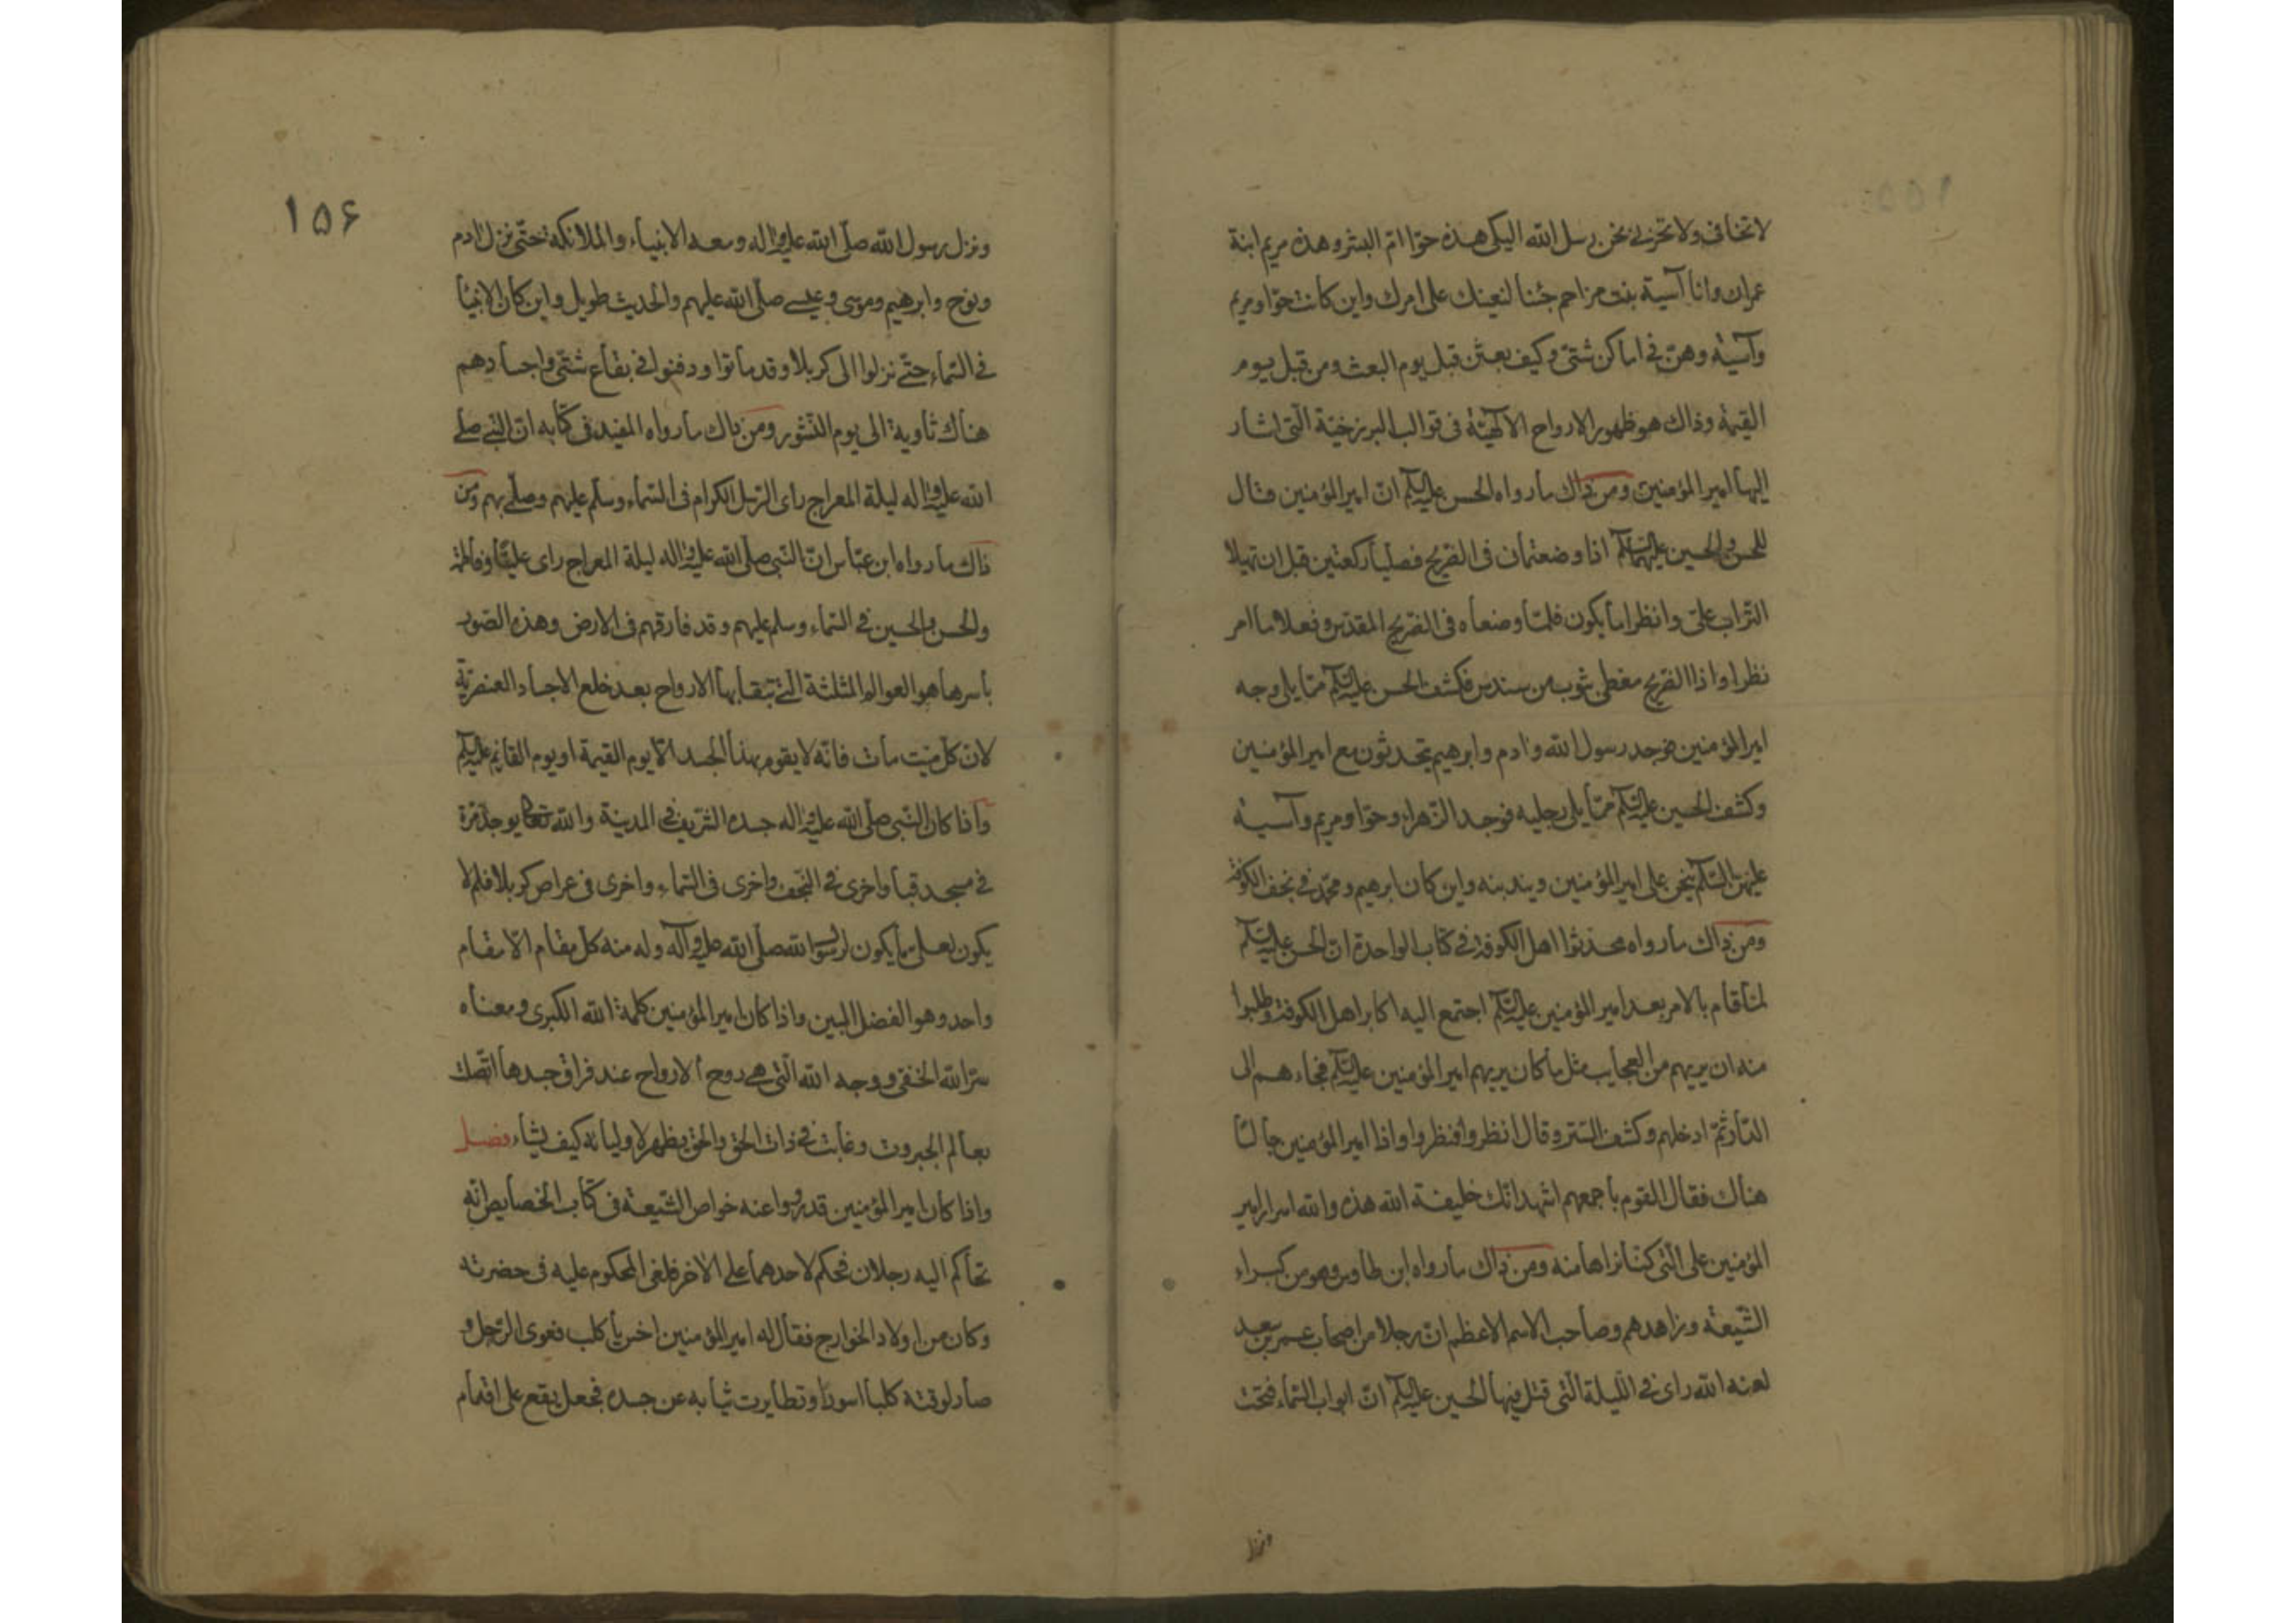 لا تخافی ولا تحزنی نحن رسل الله الیکی هذه حوّا امّ البشر وهذه مریم ابنة
عمران وانا آسیة بنت مزاحم جئنا لنعینك علی امرك واین کانت حوّا ومریم
وآسیة وهنّ فی اماکن شتیّ وکیف بعثن قبل یوم البعث ومن قبل یوم
القیمة وذاك هو ظهور الارواح الالٓهیّة فی قوالب البرزخیّة الّتی اشار
الیها امیر المؤمنین ومن ذاك ما رواه الحسن علیه السّلم انّ امیر المؤمنین قال
للحسن والحسین علیهما السّلم اذا وضعتمانی فی الضریح فصلّیا رکعتین قبل ان تهیلا
التراب علیّ وانظرا ما یکون فلمّا وضعاه فی الضریح المقدّس وفعلا ما امر
نظرا واذا الضریح مغطی بثوب من سندس فکشف الحسن علیه السّلم ممّا یلی وجه
امیر المؤمنین فوجد رسول الله وادم وابرهیم یتحدثون مع امیر المؤمنین
وکشف الحسین علیه السّلم ممّا یلی رجلیه فوجد الزهراء وحوّا ومریم وآسیة
علیهنّ السّلم ینحن علی امیر المؤمنین ویندبنه واین کان ابرهیم ومحمّد فی نجف الکوفة
ومن ذاك ما رواه محدثوا اهل الکوفة فی کتاب الواحدة انّ الحسن علیه السّلم
لمّا قام بالامر بعد امیر المؤمنین علیه السّلم اجتمع الیه اکابر اهل الکوفة وطلبوا
منه ان یریهم من العجایب مثل ما کان یریهم امیر المؤمنین علیه السّلم فجاء هم الی
الدّار ثمّ ادخلهم وکشف الستر وقال انظروا فنظروا واذا امیر المؤمنین جالسا
هناك فقال القوم باجمعهم اشهد انّك خلیفة الله هذه والله اسرار امیر
المؤمنین علی الّتی کنّا نراها منه ومن ذاك ما رواه ابن طاوس وهو من کبراء
الشّیعة وزاهدهم وصاحب الاسم الاعظم انّ رجلا من اصحاب عمر بن سعد
لعنه الله رای فی اللّیلة الّتی قتل فیها الحسین علیه السّلم انّ ابواب السّماء فتحت
ونزل
۱۵۶
ونزل رسول الله صلّی الله علیه واله ومعه الانبیاء والملائکه حتّی نزل ادم
ونوح وابرهیم وموسی وعیسی صلّی الله علیهم والحدیث طویل واین کان الانبیٓا
فی السّماء حتّی نزلوا الی کربلا وقد ماتوا ودفنوا فی بقاع شتّی واجسادهم
هناك ثاویة الی یوم النّشور ومن ذاك ما رواه المفید فی کتابه انّ النّبی صلّی
الله علیه واله لیلة المعراج رای الرّسل الکرام فی السّماء وسلّم علیهم وصلّی بهم ومن
ذاك ما رواه ابن عبّاس انّ النّبی صلّی الله علیه واله لیلة المعراج رای علیّا وفاطمة
والحسن والحسین فی السّماء وسلم علیهم وقد فارقهم فی الارض وهذه الصّور
باسرها هو العوالم المثلثة الّتی تبقا بها الارواح بعد خلع الاجساد العنصریّة
لانّ کلّ میّت مات فانّه لا یقوم بهذا الجسد الّا یوم القیمة او یوم القایم علیه السّلم
واذا کان النّبی صلّی الله علیه واله جسده الشّریف فی المدینة والله تعالی یوجده مرّة
فی مسجد قبا واخری فی النّجف واخری فی السّماء واخری فی عراص کربلا فلم لا
یکون لعلی ما یکون لرسول الله صلّی الله علیه وآله وله منه کلّ مقام الّا مقام
واحد وهو الفضل المبین واذا کان امیر المؤمنین کلمة الله الکبری ومعناه
سرّ الله الخفی ووجه الله الّتی هی روح الارواح عند فراق جسدها اتّصلت
بعالم الجبروت وغابت فی ذات الحق والحق یظهر لاولیائه کیف یشاء فصل
واذا کان امیر المؤمنین قد رووا عنه خواص الشّیعة فی کتاب الخصایص انّه
تحاکم الیه رجلان فحکم لاحدهما علی الاخر فلغی المحکوم علیه فی حضرته
وکان من اولاد الخوارج فقال له امیر المؤمنین اخس یا کلب فعوی الرّجل و
صار لوقته کلبا اسودا وتطایرت ثیابه عن جسده فجعل یقع علی اقدام